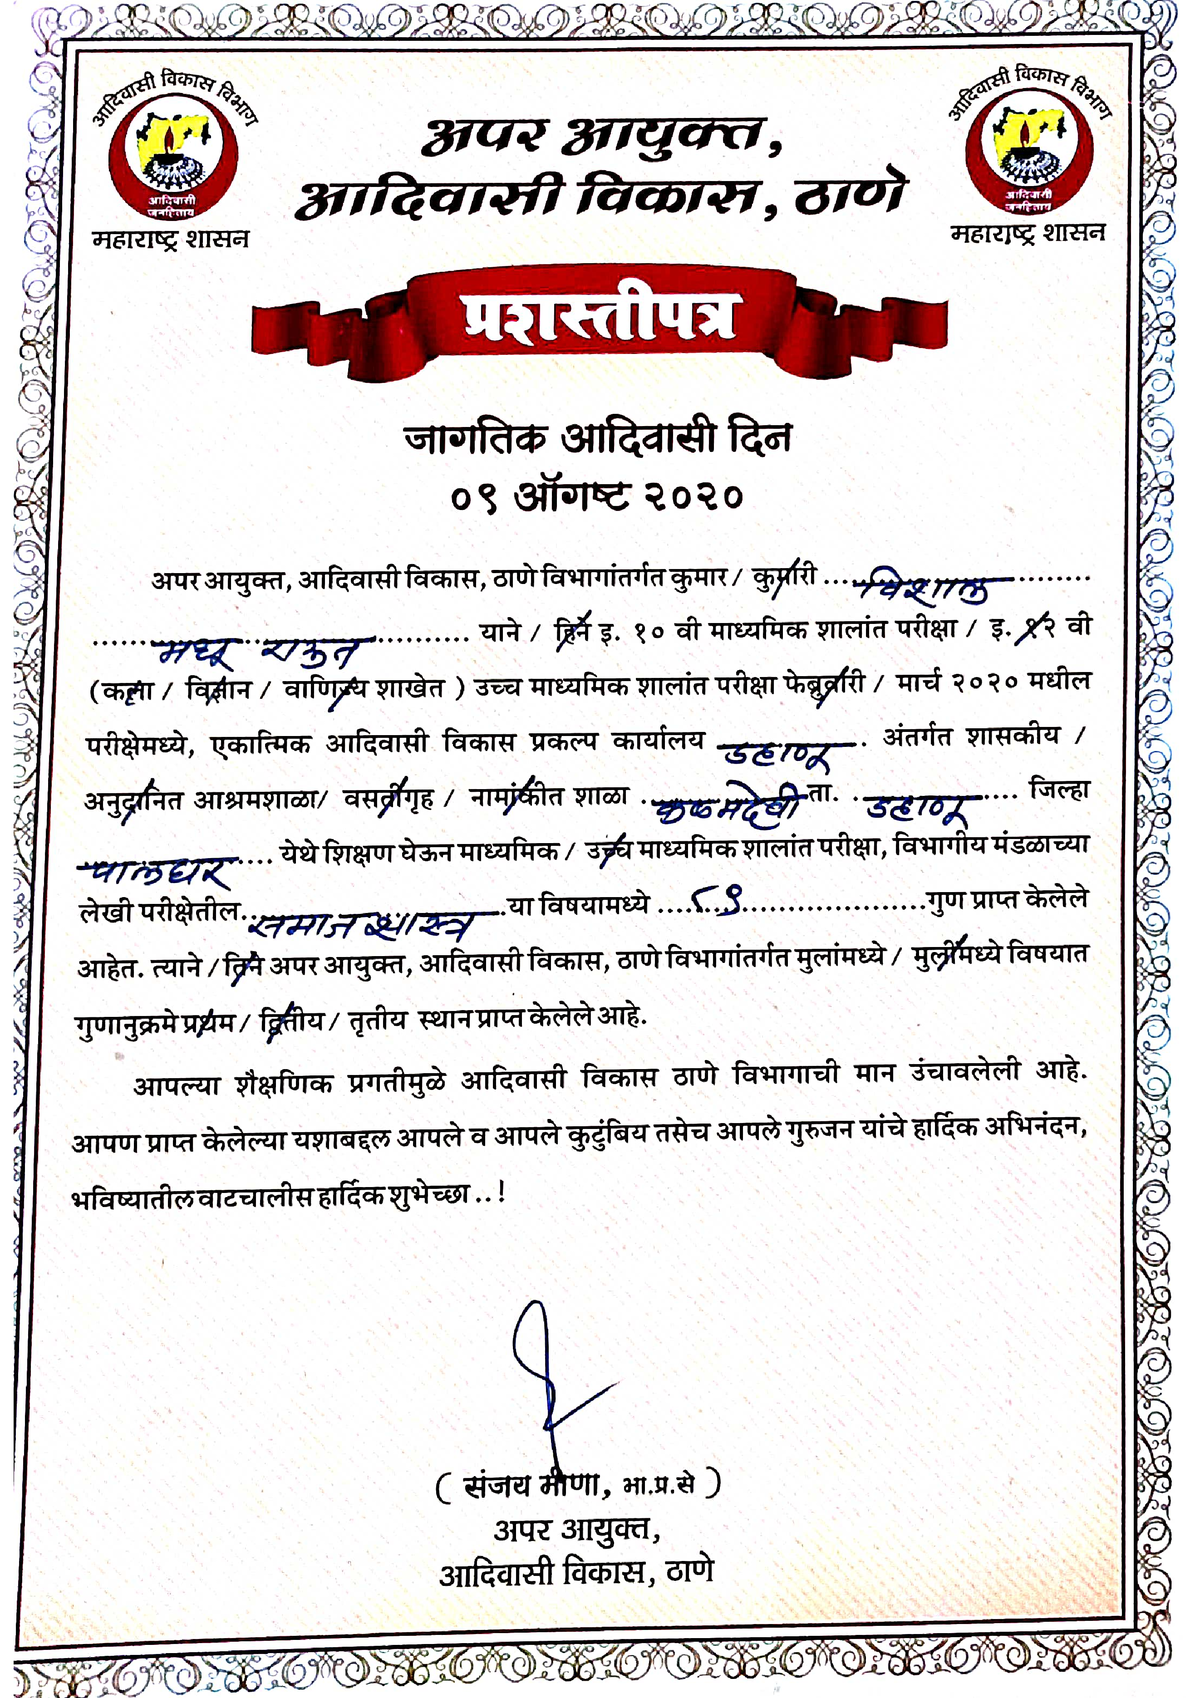 आदिवासी विकास विभाग
आदिवासी
जनहिताय
महाराष्ट्र शासन
आदिवासी विकास विभाग
आदिवासी
जनहिताय
महाराष्ट्र शासन
अपर आयुक्त,
आदिवासी विकास, ठाणे
प्रशस्तीपत्र
जागतिक आदिवासी दिन
०९ ऑगष्ट २०२०
अपर आयुक्त, आदिवासी विकास, ठाणे विभागांतर्गत कुमार / कुमारी ....विशाल..........
.....मधू राऊत.......... याने / हिने इ. १० वी माध्यमिक शालांत परीक्षा / इ. १२ वी
(कला / विज्ञान / वाणिज्य शाखेत ) उच्च माध्यमिक शालांत परीक्षा फेब्रुवारी / मार्च २०२० मधील
परीक्षेमध्ये, एकात्मिक आदिवासी विकास प्रकल्प कार्यालय डहाणू. अंतर्गत शासकीय /
अनुदानित आश्रमशाळा/ वसतीगृह / नामांकीत शाळा .कळमदेवी ता. .डहाणू.... जिल्हा
पालघर.... येथे शिक्षण घेऊन माध्यमिक / उच्च माध्यमिक शालांत परीक्षा, विभागीय मंडळाच्या
लेखी परीक्षेतील..समाजशास्त्र.या विषयामध्ये ....८९....................गुण प्राप्त केलेले
आहेत. त्याने / तिने अपर आयुक्त, आदिवासी विकास, ठाणे विभागांतर्गत मुलांमध्ये / मुलींमध्ये विषयात
गुणानुक्रमे प्रथम / द्वितीय / तृतीय स्थान प्राप्त केलेले आहे.
आपल्या शैक्षणिक प्रगतीमुळे आदिवासी विकास ठाणे विभागाची मान उंचावलेली आहे.
आपण प्राप्त केलेल्या यशाबद्दल आपले व आपले कुटुंबिय तसेच आपले गुरुजन यांचे हार्दिक अभिनंदन,
भविष्यातील वाटचालीस हार्दिक शुभेच्छा ..!
( संजय मीणा, भा.प्र.से )
अपर आयुक्त,
आदिवासी विकास, ठाणे